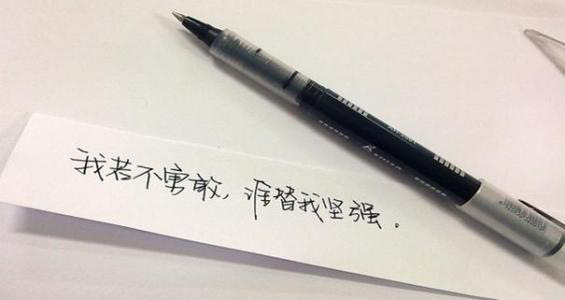 我若不勇敢，谁替我坚强。